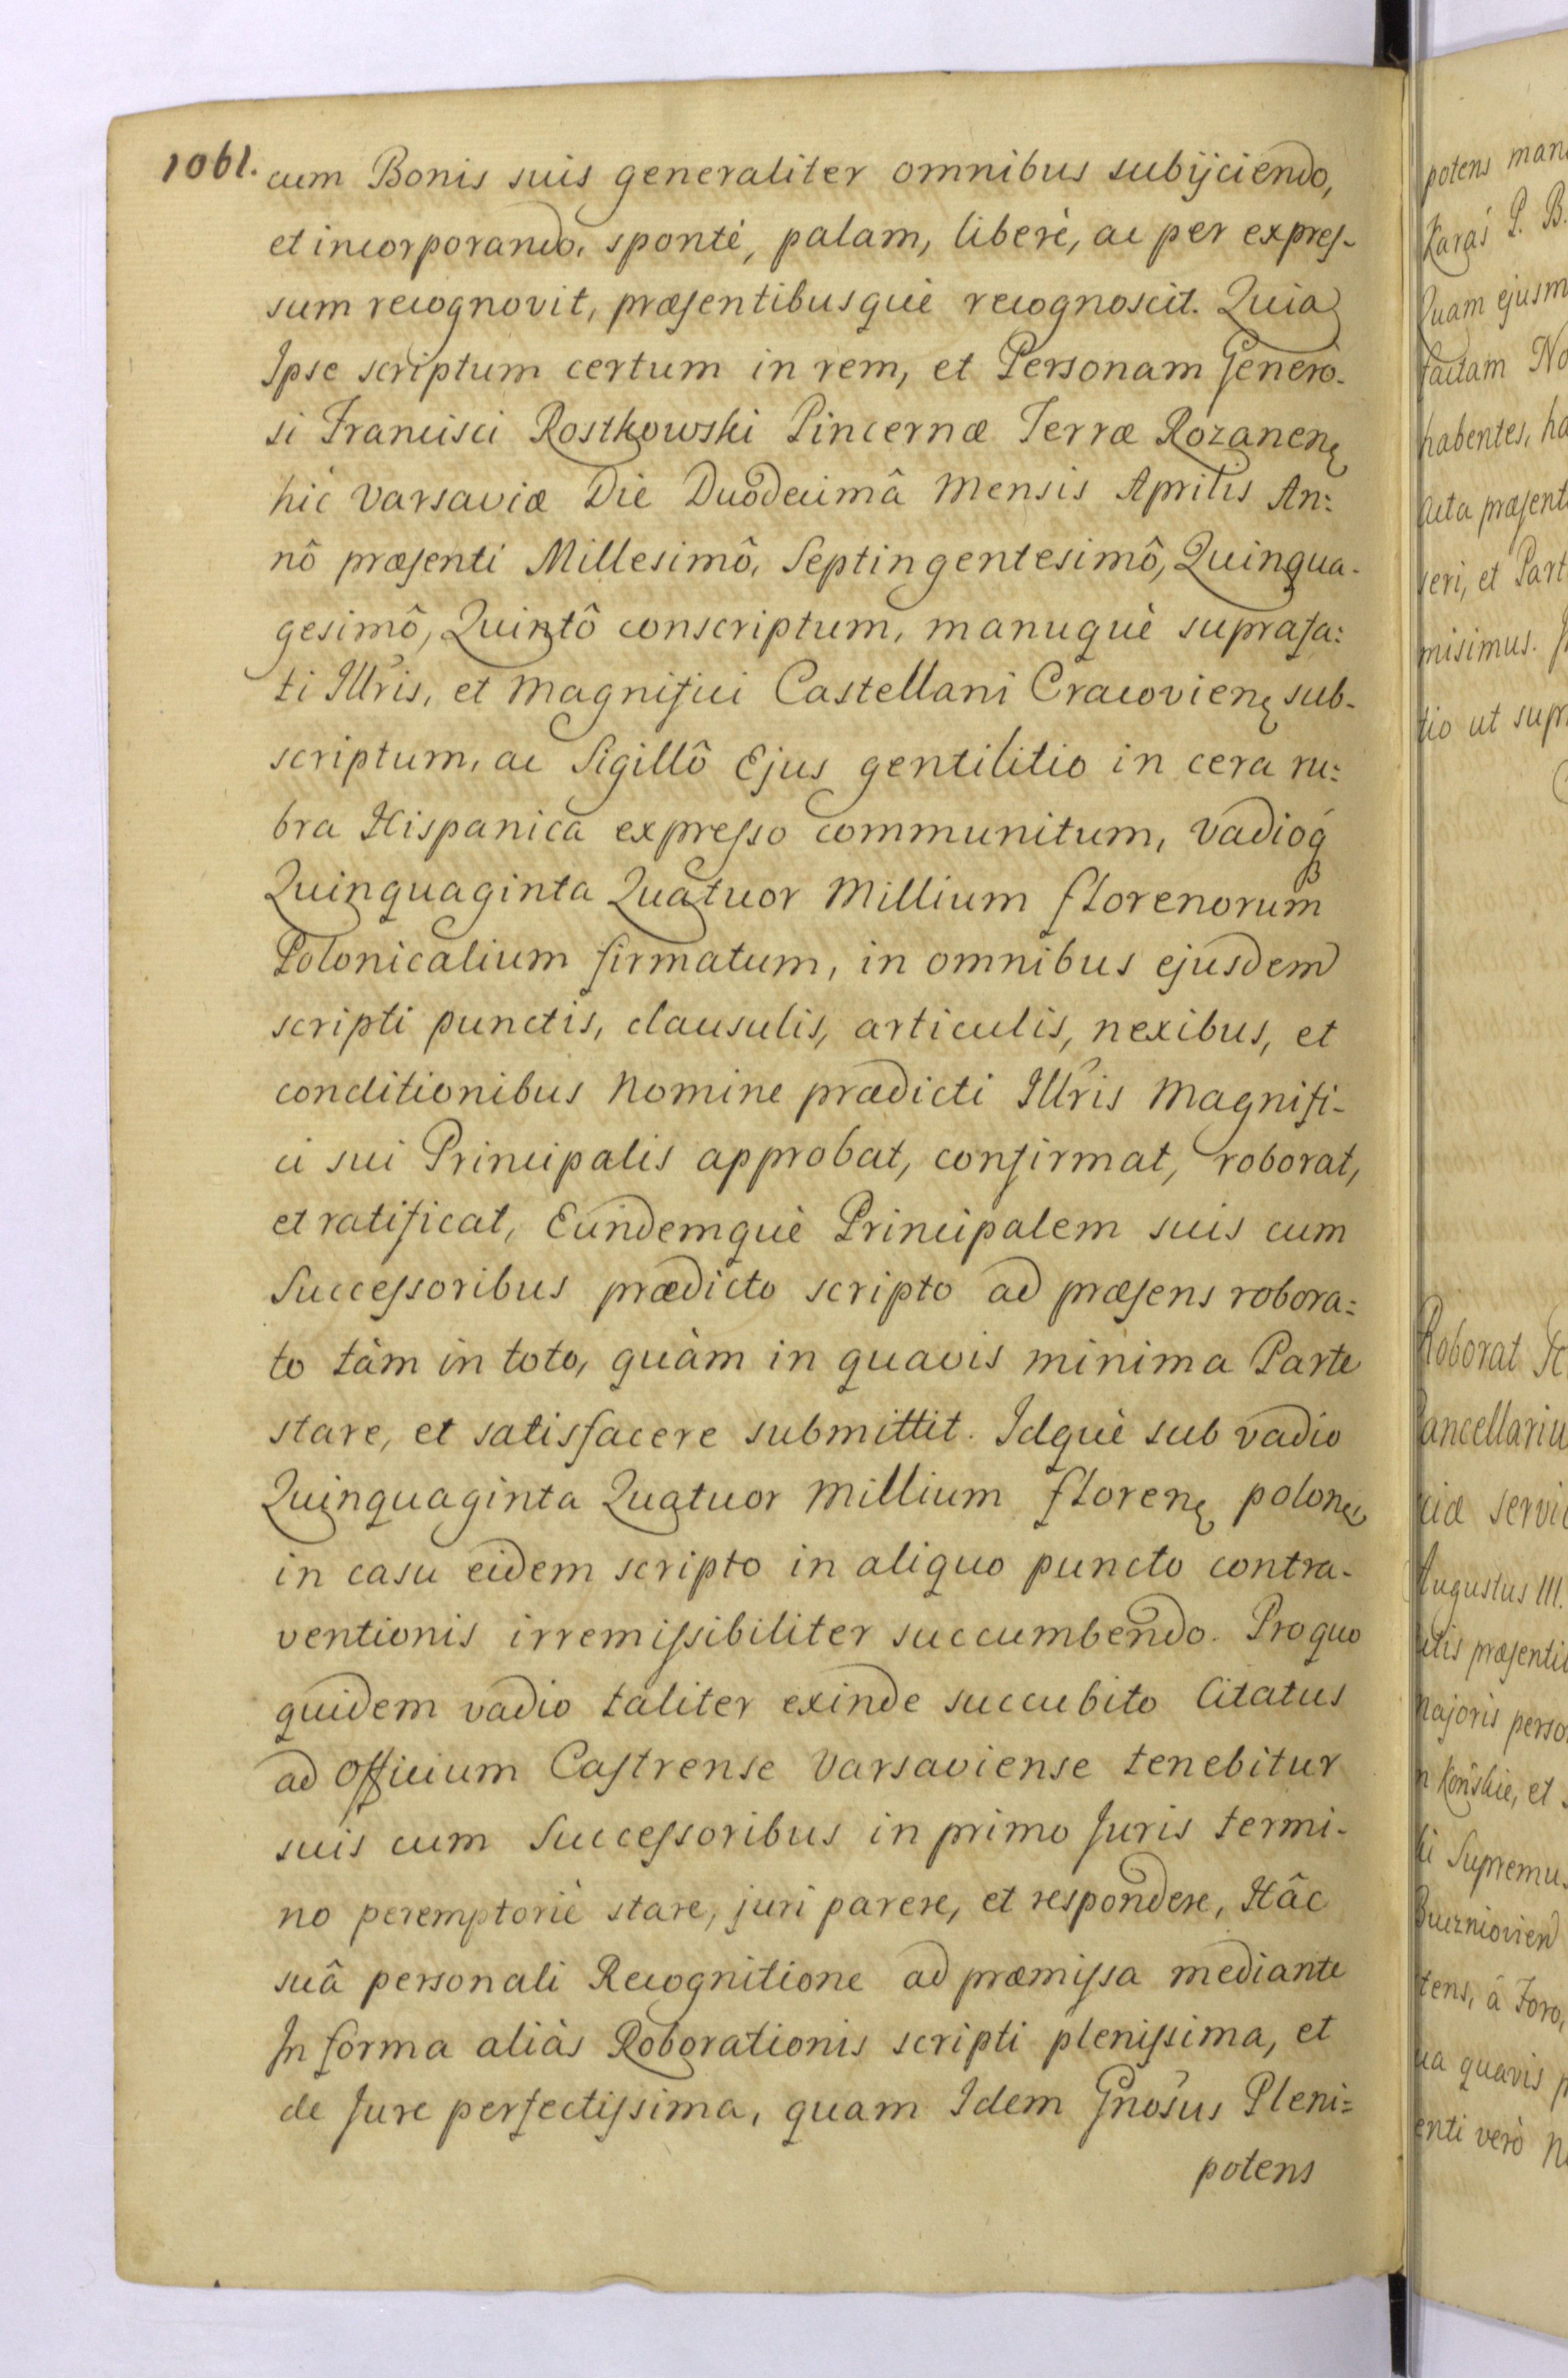 1061.
cum Bonis suis generaliter omnibus subijciendo,
et incorporando, sponté, palam, liberè, ac per expres-
sum recognovit, præsentibusquè recognoscit. Quia
Ipse scriptum certum in rem, et Personam Genero-
si Francisci Rostkowski Pincernæ Terræ Rozanenę
hic Varsaviæ Die Duodecimâ Mensis Aprilis An:
nô præsenti Millesimô, Septingentesimô, Quinqua-
gesimô, Quintô conscriptum, manuquè suprafa:
ti Illris, et Magnifici Castellani Cracovienę sub-
scriptum, ac Sigillô Ejus gentilitio in cera ru:
bra Hispanica expresso communitum, Vadioq́
Quinquaginta Quatuor Millium florenorum
Polonicalium firmatum, in omnibus ejusdem
scripti punctis, clausulis, articulis, nexibus, et
conditionibus Nomine prædicti Illris Magnifi-
ci sui Principalis approbat, confirmat, roborat,
et ratificat, Eundemquè Principalem suis cum
Successoribus prædicto scripto ad præsens robora:
to tàm in toto, quàm in quavis minima Parte
stare, et satisfacere submittit. Idquè sub vadio
Quinquaginta Quatuor Millium florenę polonę
in casu eidem scripto in aliquo puncto contra-
ventionis irremissibiliter succumbendo. Pro quo
quidem vadio taliter exinde succubito Citatus
ad Officium Castrense Varsaviense tenebitur
suis cum Successoribus in primo Juris termi-
no peremptoriè stare, juri parere, et respondere, Hâc
suâ personali Recognitione ad præmissa mediante
In forma aliàs Roborationis scripti plenissima, et
de Jure perfectissima, quam Idem Gnosus Pleni=
potens
potens
Karaś P. B.
Quam
factam
habentes,
Acta
seri, et
misimus.
tio ut
Roborat
servi
Augustus III.
majoris
Końskie, et
Supremu
â Foro,
quavis
enti verò